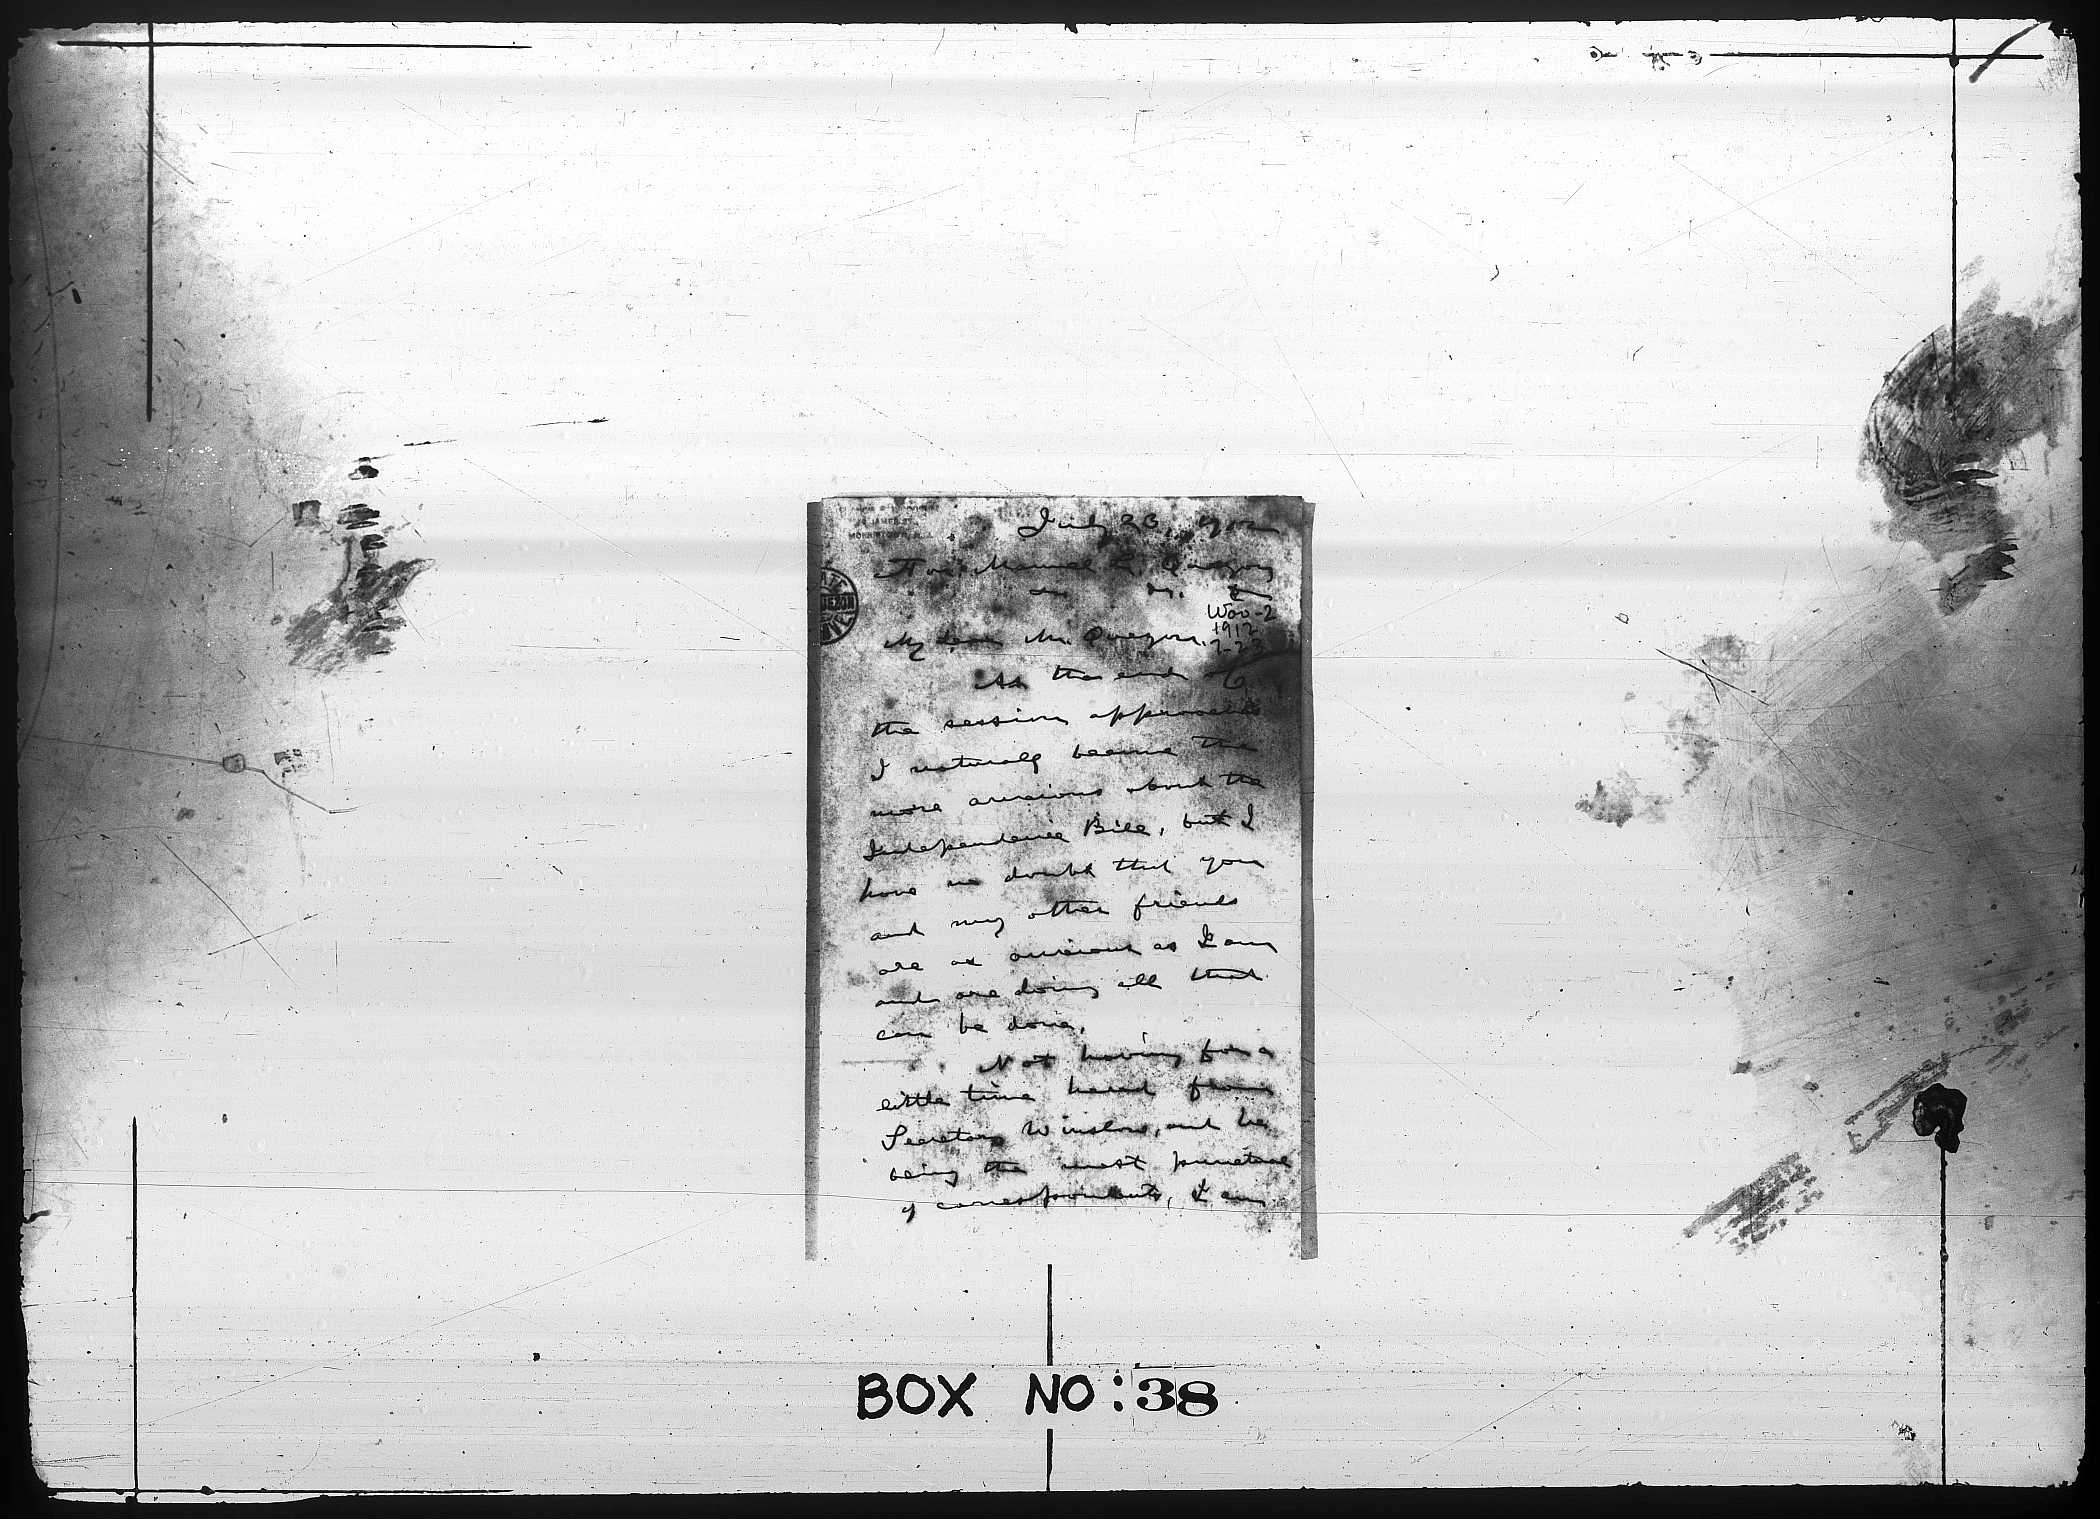 July 23, 1912
Hon. Manuel L. Quezon
Woo-2
1912
7-23
My dear Mr. Quezon:
As the end of
the session approaches
I naturally become the
more anxious about the
Independence Bill, but I
have no doubt that you
and my other friends
are as anxious as I am
and are doing all that
can be done.
Not having for a
little time heard from
Secretary Winslow, and he
being the most punctual
of correspondents, I am
BOX NO: 38